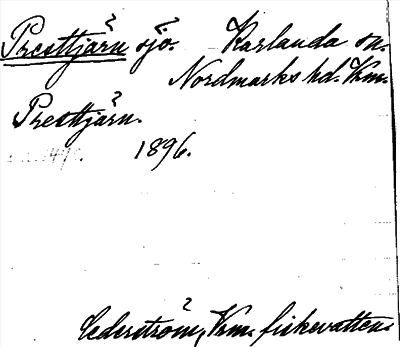 Presttjärn sjö. Karlanda sn.
Nordmarks hd. Vrm.
Presttjärn.
1896.
Cederström, Vrm. fiskevatten.